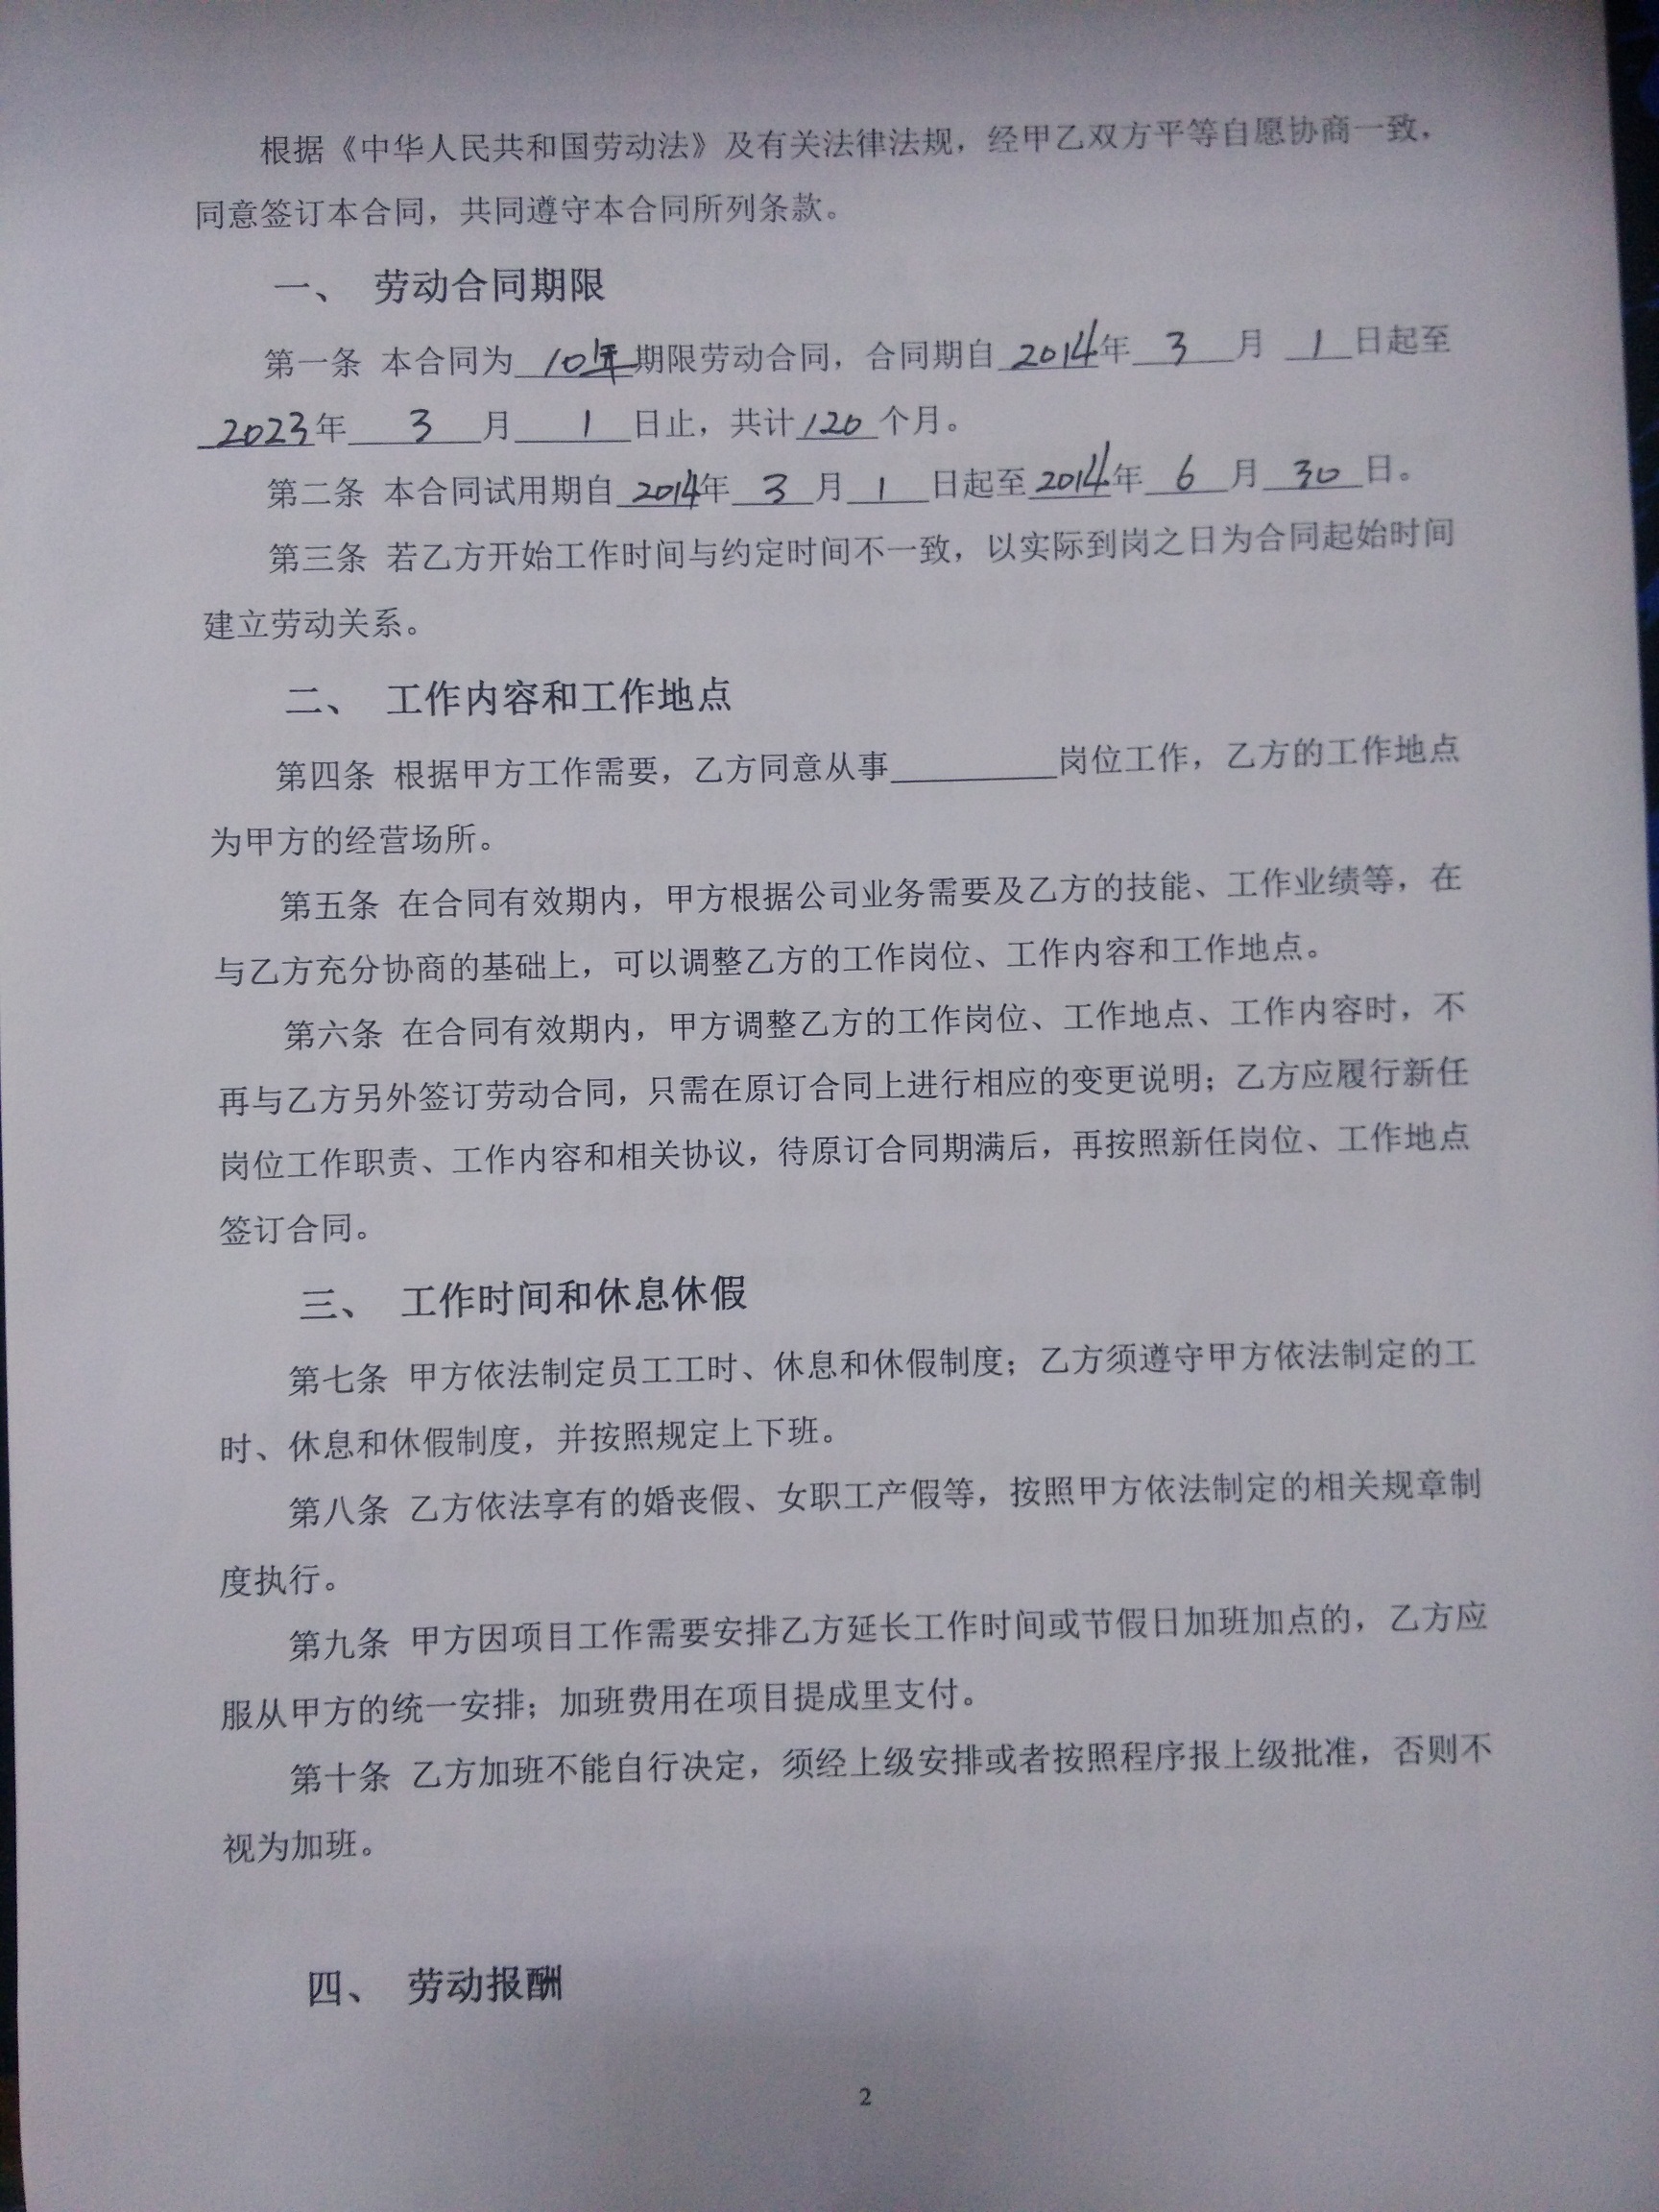 根据《中华人民共和国劳动法》及有关法律法规，经甲乙双方平等自愿协商一致，
同意签订本合同，共同遵守本合同所列条款。
一、 劳动合同期限
第一条 本合同为 10年 期限劳动合同，合同期自 2014 年 3 月 1 日起至
2023 年 3 月 1 日止，共计 120 个月。
第二条 本合同试用期自 2014 年 3 月 1 日起至 2014 年 6 月 30 日。
第三条 若乙方开始工作时间与约定时间不一致，以实际到岗之日为合同起始时间
建立劳动关系。
二、 工作内容和工作地点
第四条 根据甲方工作需要，乙方同意从事__________岗位工作，乙方的工作地点
为甲方的经营场所。
第五条 在合同有效期内，甲方根据公司业务需要及乙方的技能、工作业绩等，在
与乙方充分协商的基础上，可以调整乙方的工作岗位、工作内容和工作地点。
第六条 在合同有效期内，甲方调整乙方的工作岗位、工作地点、工作内容时，不
再与乙方另外签订劳动合同，只需在原订合同上进行相应的变更说明；乙方应履行新任
岗位工作职责、工作内容和相关协议，待原订合同期满后，再按照新任岗位、工作地点
签订合同。
三、 工作时间和休息休假
第七条 甲方依法制定员工工时、休息和休假制度；乙方须遵守甲方依法制定的工
时、休息和休假制度，并按照规定上下班。
第八条 乙方依法享有的婚丧假、女职工产假等，按照甲方依法制定的相关规章制
度执行。
第九条 甲方因项目工作需要安排乙方延长工作时间或节假日加班加点的，乙方应
服从甲方的统一安排；加班费用在项目提成里支付。
第十条 乙方加班不能自行决定，须经上级安排或者按照程序报上级批准，否则不
视为加班。
四、 劳动报酬
2